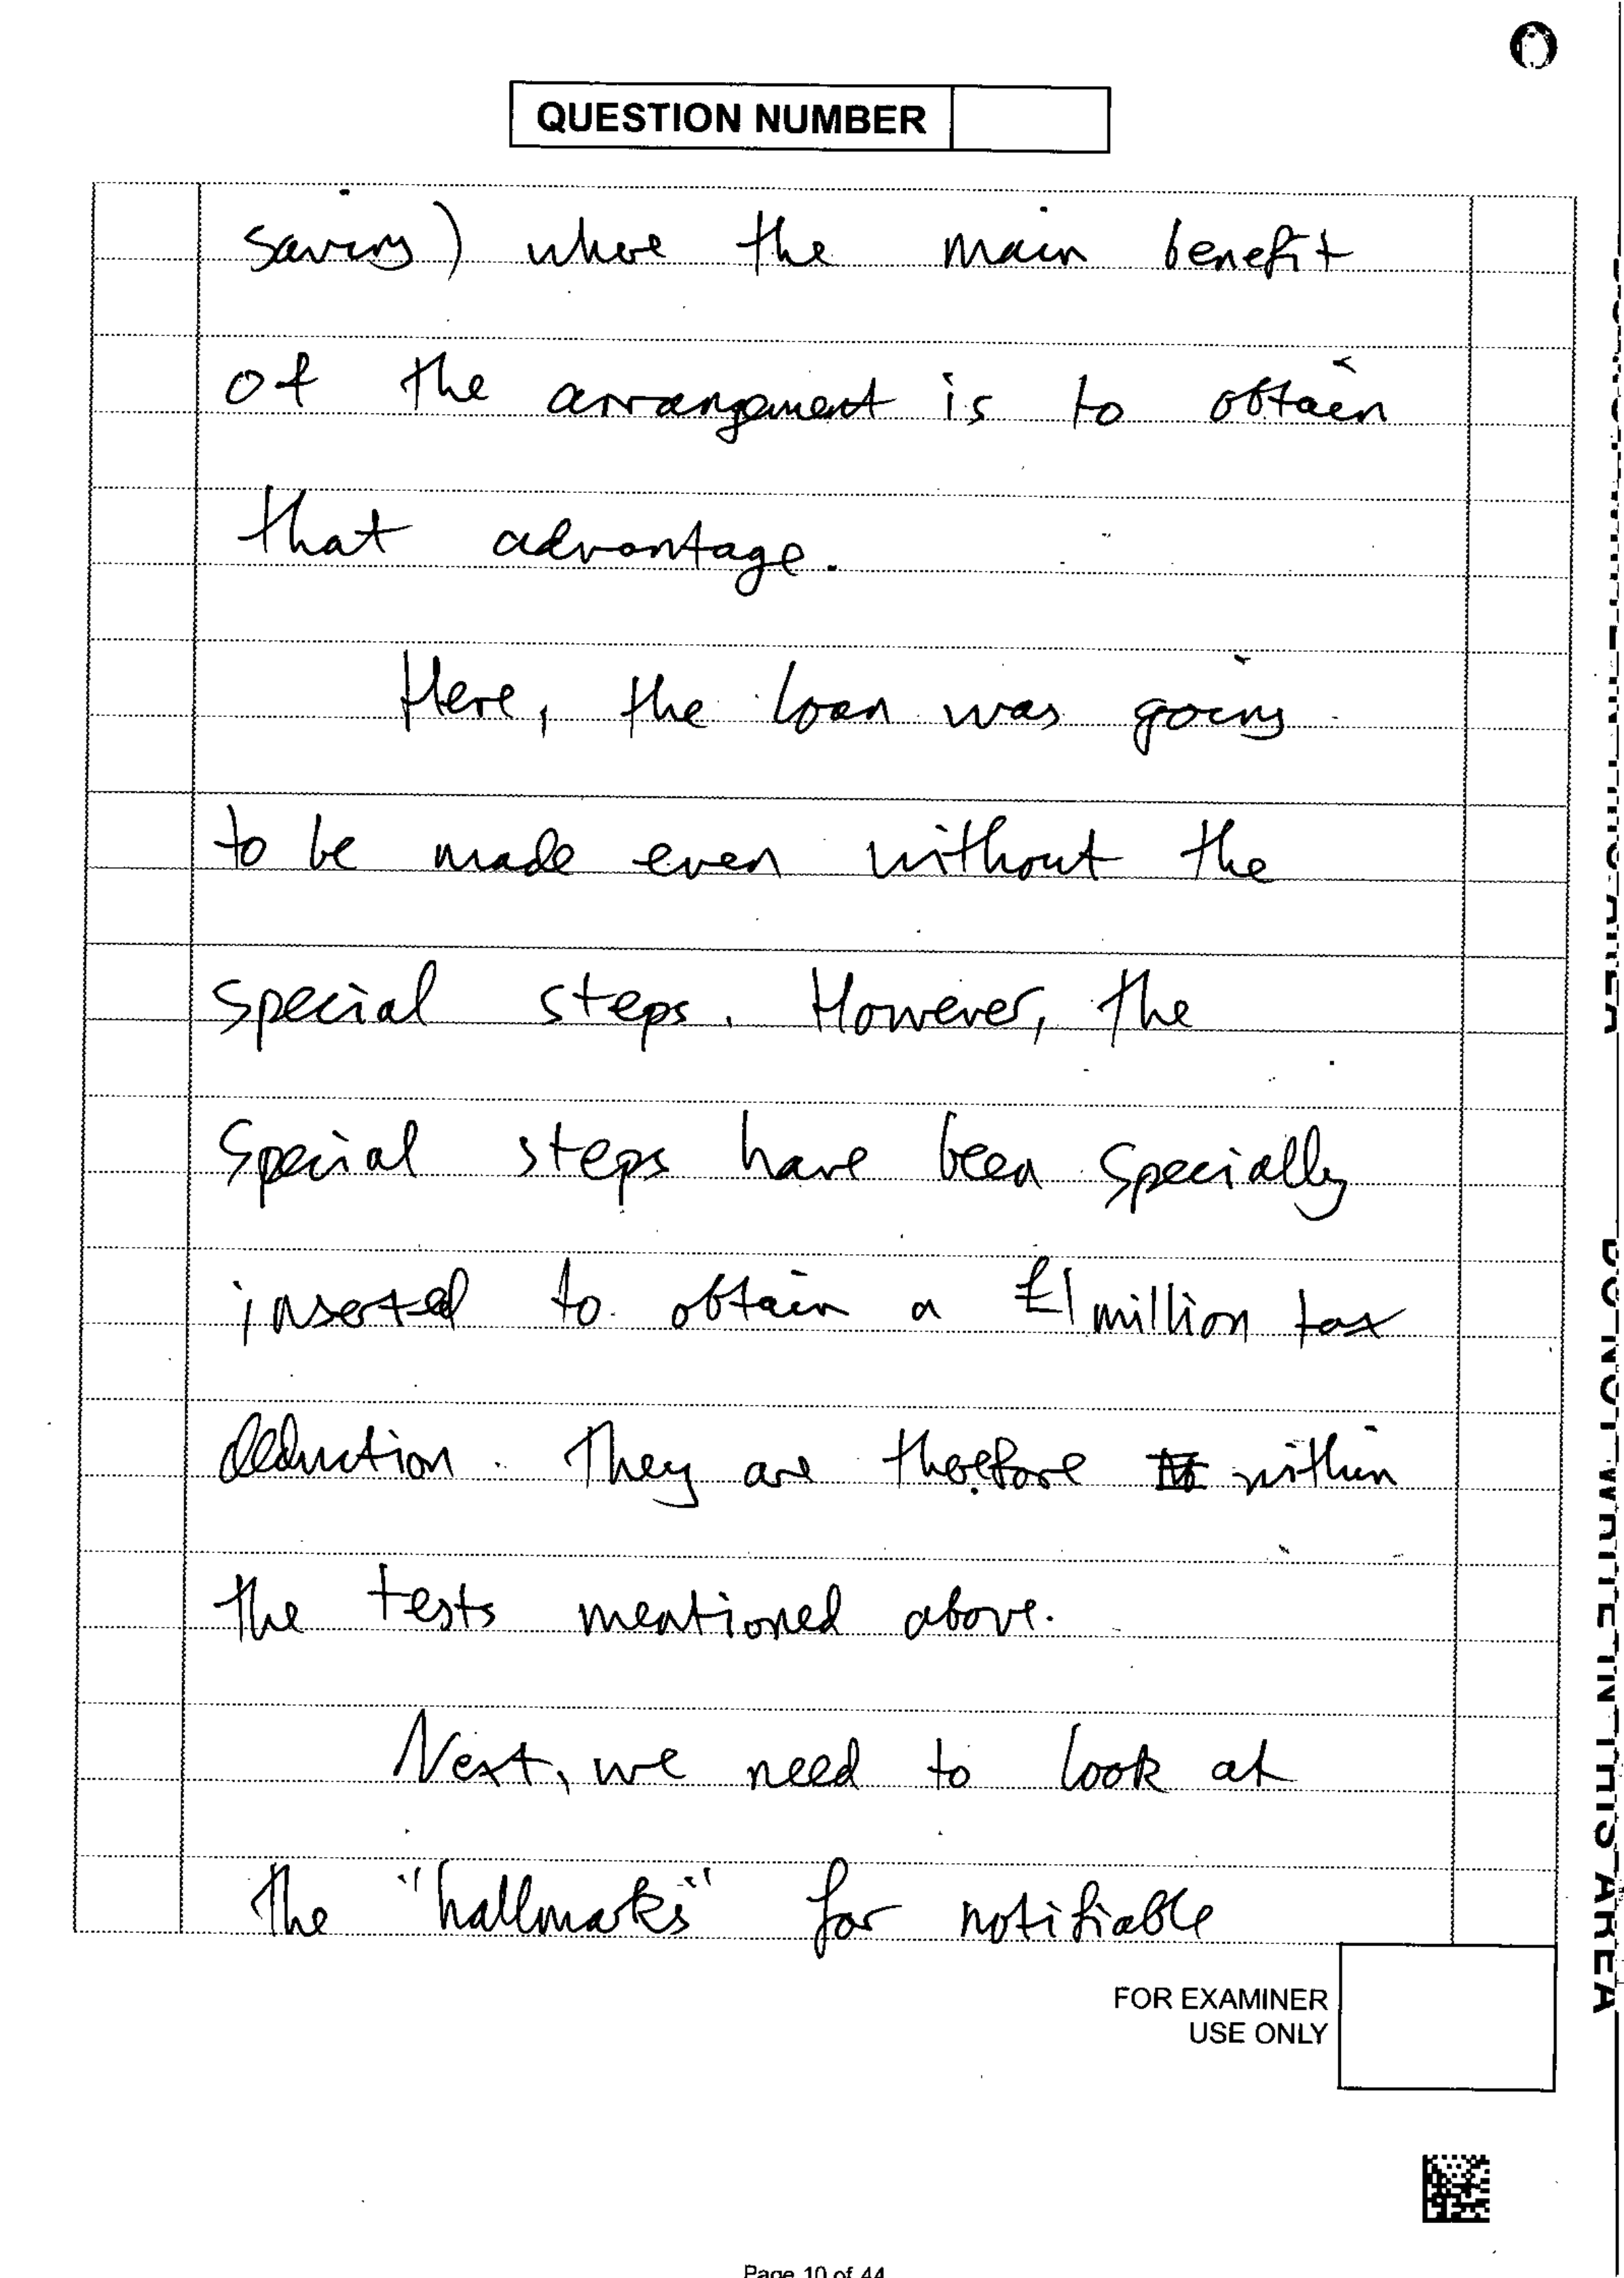 QUESTION NUMBER
saving) where the main benefit
of the arrangement is to obtain
that advantage.
Here, the loan was going
to be made even without the
special steps. However, the
special steps have been specially
inserted to obtain a £1 million tax
deduction. They are therefore within
the tests mentioned above.
Next, we need to look at
the "hallmarks" for notifiable
FOR EXAMINER
USE ONLY
Page 10 of 44
DO NOT WRITE IN THIS AREA